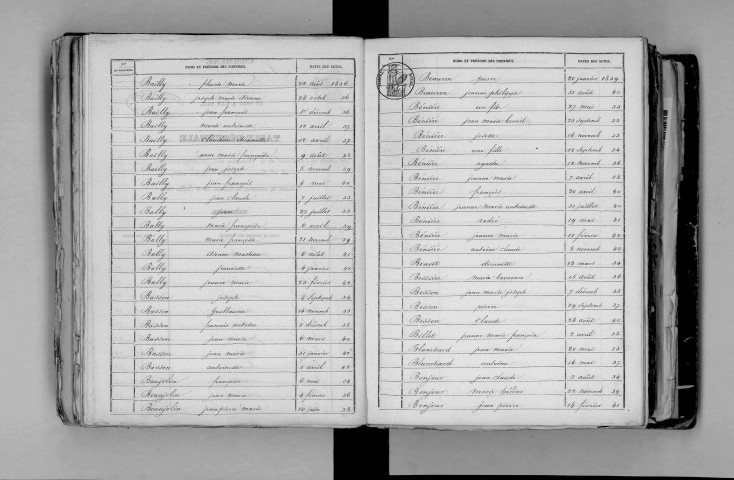 NOMS ET PRÉNOMS DES INDIVIDUS. DATES DES ACTES.
Bailly fleurie marie 22 août 1836
Bailly joseph marie étienne 26 36
Bailly jean françois 1er décemb 36
Bailly marie antoinette 12 avril 37
Bailly 12 avril 37
Bailly anne marie françoise 9 août 38
Bailly jean joseph 5 novemb 39
Bailly jean françois 6 mai 40
Bally jean claude 7 juillet 33
Bally jean 27 juillet 33
Bally marie françoise 6 avril 39
Bally marie françoise 21 novemb 39
Bally étienne mathieu 6 août 41
Bally jeannette 6 janvier 42
Bally jeanne marie 20 février 42
Basson joseph 4 septemb 34
Basson guillaume 14 novemb 35
Basson françois antoine 1 décemb 38
Basson jean marie 6 mars 40
Basson jean marie 31 janvier 41
Basson antoinette 1 avril 42
Beaujolin françoise 6 mai 34
Beaujolin jean marie 4 février 36
Beaujolin marie 10 juin 38
NOMS ET PRÉNOMS DES INDIVIDUS. DATES DES ACTES.
Beauvron pierre 20 janvier 1839
Beauvron jeanne philippe 31 août 40
Bénière un fils 27 mai 33
Bénière jean marie benoit 23 septemb 33
Bénière josette 16 novemb 33
Bénière une fille 12 septemb 34
Bénière agathe 12 novemb 36
Bénière jeanne marie 7 avril 38
Bénière françois 20 avril 40
Bénière jeanne marie antoinette 31 juillet 40
Bénière andré 19 mai 41
Bénière jeanne marie 11 février 42
Bénière antoine claude 6 novemb 42
Benoit étiennette 15 mars 34
Bessière marie laurence 15 août 36
Besson jean marie joseph 7 décemb 33
Besson pierre 29 septemb 37
Besson claude 28 août 40
Billet jeanne marie françoise 2 avril 35
Blanchard jean marie 20 mai 33
Blanchard antoine 16 mai 37
Bonjour jean claude 3 août 34
Bonjour marie hélène 22 novemb 36
Bonjour jean pierre 14 février 41